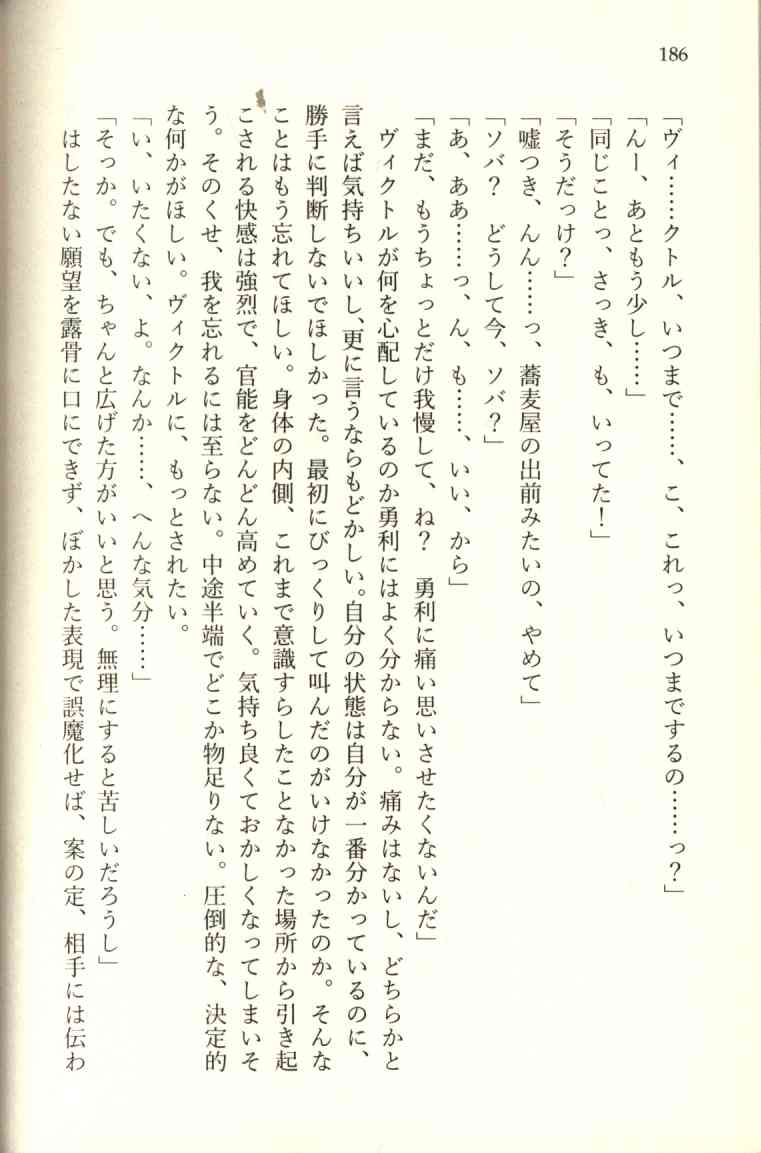 186
「ヴィ……クトル、いつまで……、こ、これっ、いつまでするの……っ？」
「んー、あともう少し……」
「同じことっ、さっき、も、いってた！」
「そうだっけ？」
「嘘つき、んん……っ、蕎麦屋の出前みたいの、やめて」
「ソバ？　どうして今、ソバ？」
「あ、ああ……っ、ん、も……、いい、から」
「まだ、もうちょっとだけ我慢して、ね？　勇利に痛い思いさせたくないんだ」
　ヴィクトルが何を心配しているのか勇利にはよく分からない。痛みはないし、どちらかと
言えば気持ちいいし、更に言うならもどかしい。自分の状態は自分が一番分かっているのに、
勝手に判断しないでほしかった。最初にびっくりして叫んだのがいけなかったのか。そんな
ことはもう忘れてほしい。身体の内側、これまで意識すらしたことなかった場所から引き起
こされる快感は強烈で、官能をどんどん高めていく。気持ち良くておかしくなってしまいそ
う。そのくせ、我を忘れるには至らない。中途半端でどこか物足りない。圧倒的な、決定的
な何かがほしい。ヴィクトルに、もっとされたい。
「い、いたくない、よ。なんか……、へんな気分……」
「そっか。でも、ちゃんと広げた方がいいと思う。無理にすると苦しいだろうし」
　はしたない願望を露骨に口にできず、ぼかした表現で誤魔化せば、案の定、相手には伝わ